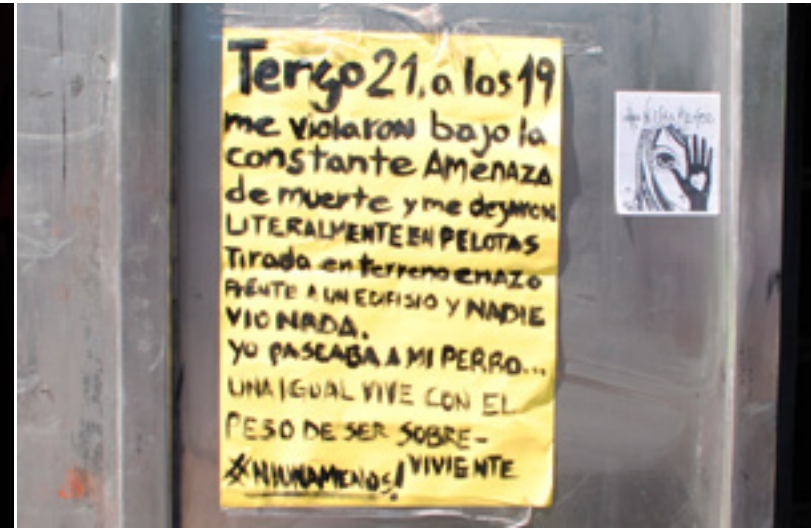 Tengo 21, a los 19
me violaron bajo la
constante AMENAZA
de muerte y me dejaron
LITERALMENTE EN PELOTAS
Tirada en terreno eriazo
FRENTE A UN EDIFISIO Y NADIE
VIO NADA.
YO PASEABA A MI PERRO...
UNA IGUAL VIVE CON EL
PESO DE SER SOBRE-
VIVIENTE
#NIUNAMENOS!